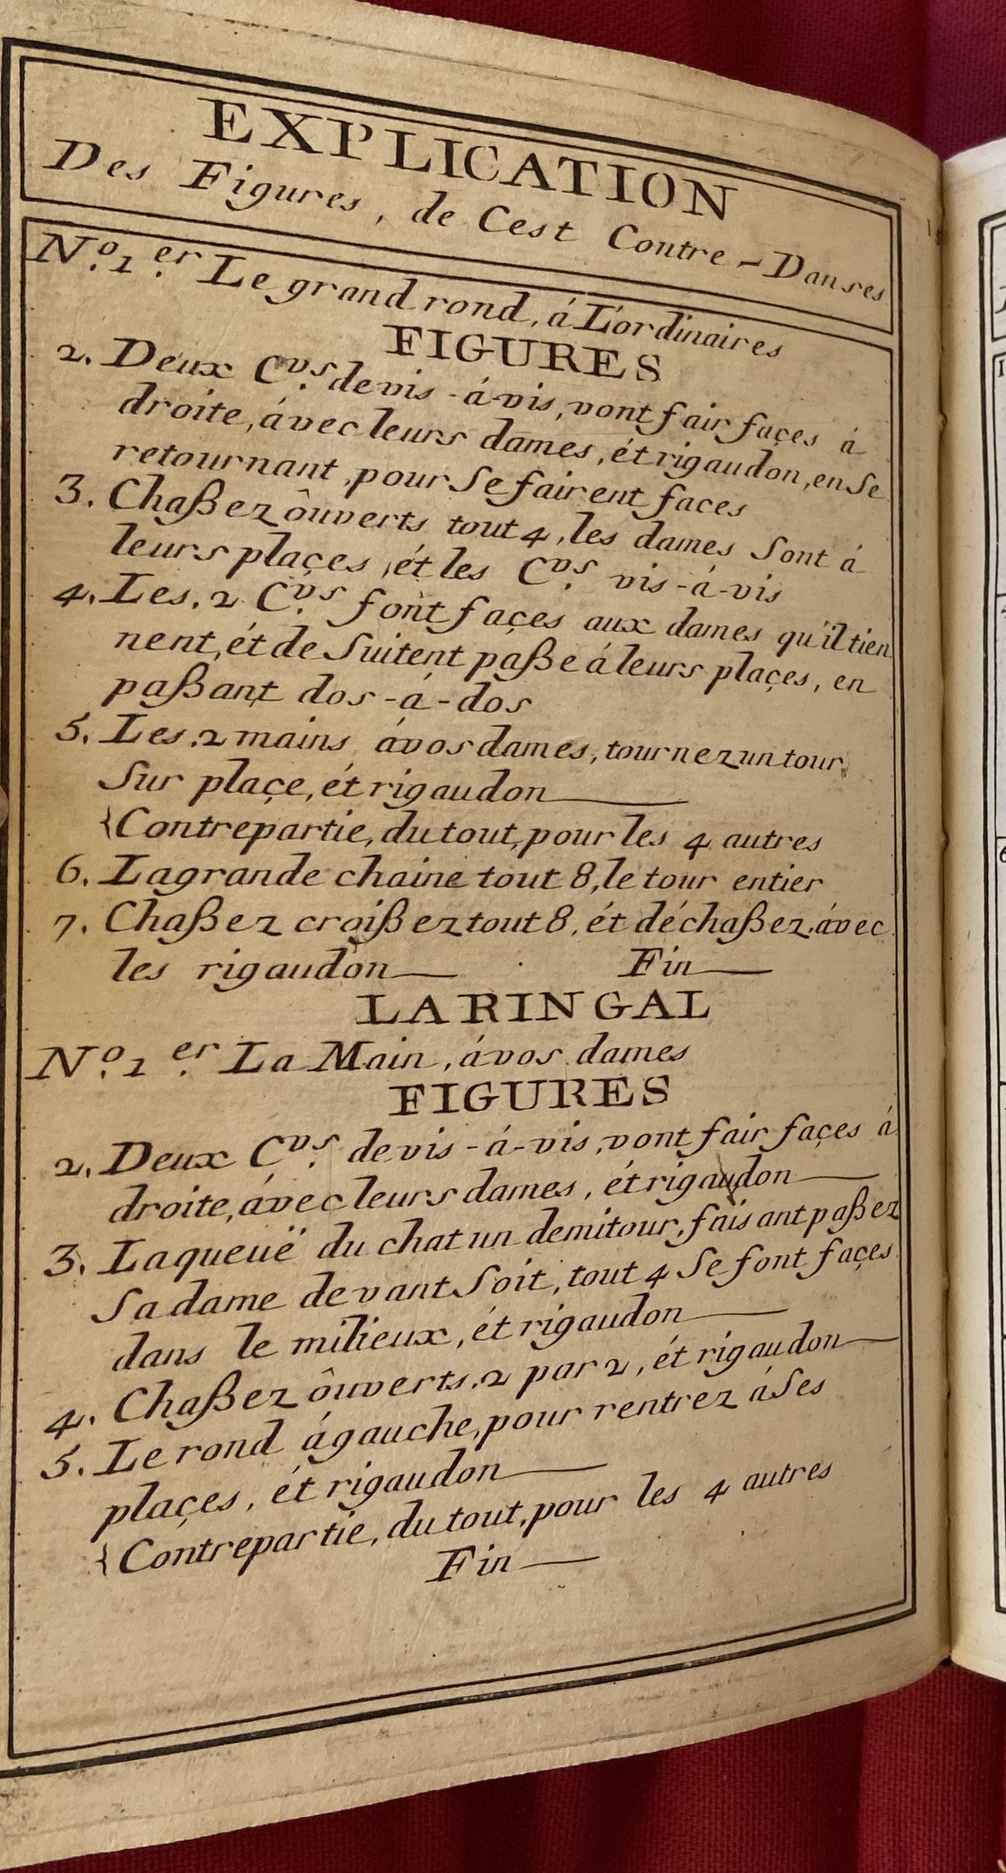 EXPLICATION
Des Figures, de Cest Contre-Danses
N.º 1.er Le grand rond, á L'ordinaires
FIGURES
2. Deux C.vs de vis-á-vis, vont fair façes á
droite, ávec leurs dames, ét rigaudon, en se
retournant, pour se fairent faces
3. Chaßez ôuverts tout 4, les dames sont á
leurs plaçes, ét les C.vs vis-á-vis
4. Les. 2 C.vs font façes aux dames qu'il tien
nent, ét de suitent paßse á leurs plaçes, en
paßant dos-á-dos
5. Les. 2 mains ávos dames, tournez un tour
Sur plaçe, ét rigaudon
{Contrepartie, du tout, pour les 4 autres
6. La grande chaine tout 8, le tour entier
7. Chaßez croißez tout 8, ét déchaßez, ávec
les rigaudon Fin
LA RINGAL
N.º 1.er La Main, ávos dames
FIGURES
2. Deux C.vs de vis-á-vis, vont fair façes á
droite, ávec leurs dames, ét rigaudon
3. La queuë du chat un demi tour, faisant paßez
Sa dame devant Soit, tout 4 Se font façes
dans le milieux, ét rigaudon
4. Chaßez ôuverts. 2 par 2, ét rigaudon
5. Le rond ágauche, pour rentrez á Ses
plaçes, ét rigaudon
{Contrepartie, du tout, pour les 4 autres
Fin